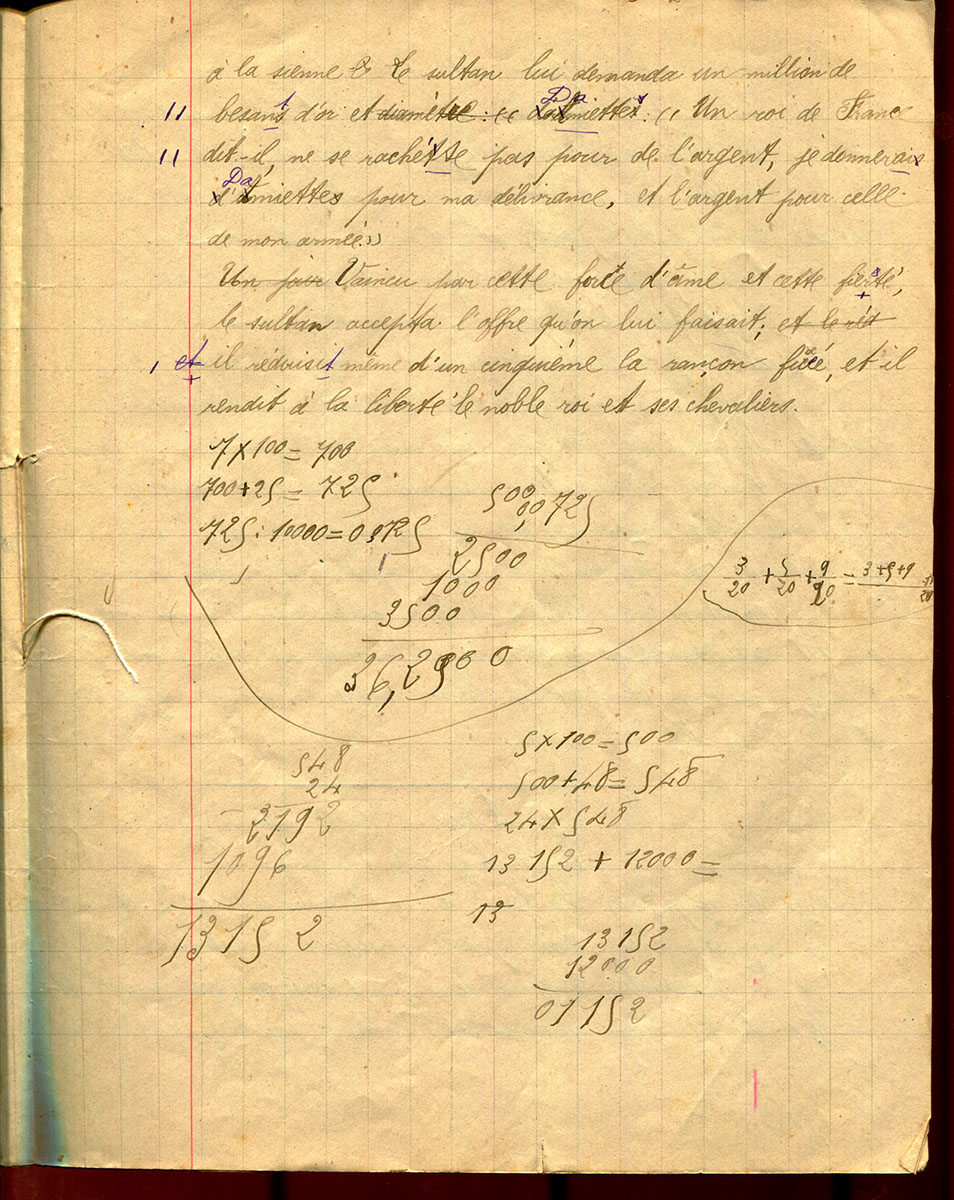 à la sienne & le sultan lui demanda un million de
besants d'or et diamètre : (( Damiette : (( Un roi de France
dit-il, ne se rachète pas pour de l'argent, je donnerais
Damiette pour ma délivrance, et l'argent pour celle
de mon armée.))
Un jour Vaincu par cette force d'âme et cette fierté,
le sultan accepta l'offre qu'on lui faisait, et le réd
et il réduisit même d'un cinquième la rançon fixée, et il
rendit à la liberté le noble roi et ses chevaliers.
7 x 100 = 700
700 + 25 = 725
725 : 10000 = 0,0725
500
0,0725
2500
1000
3500
36,2500
3/20 + 5/20 + 9/20 = 3+5+9
548
24
2192
1096
13152
5 x 100 = 500
500 + 48 = 548
24 x 548
13152 + 12000 =
13
13152
12000
01152